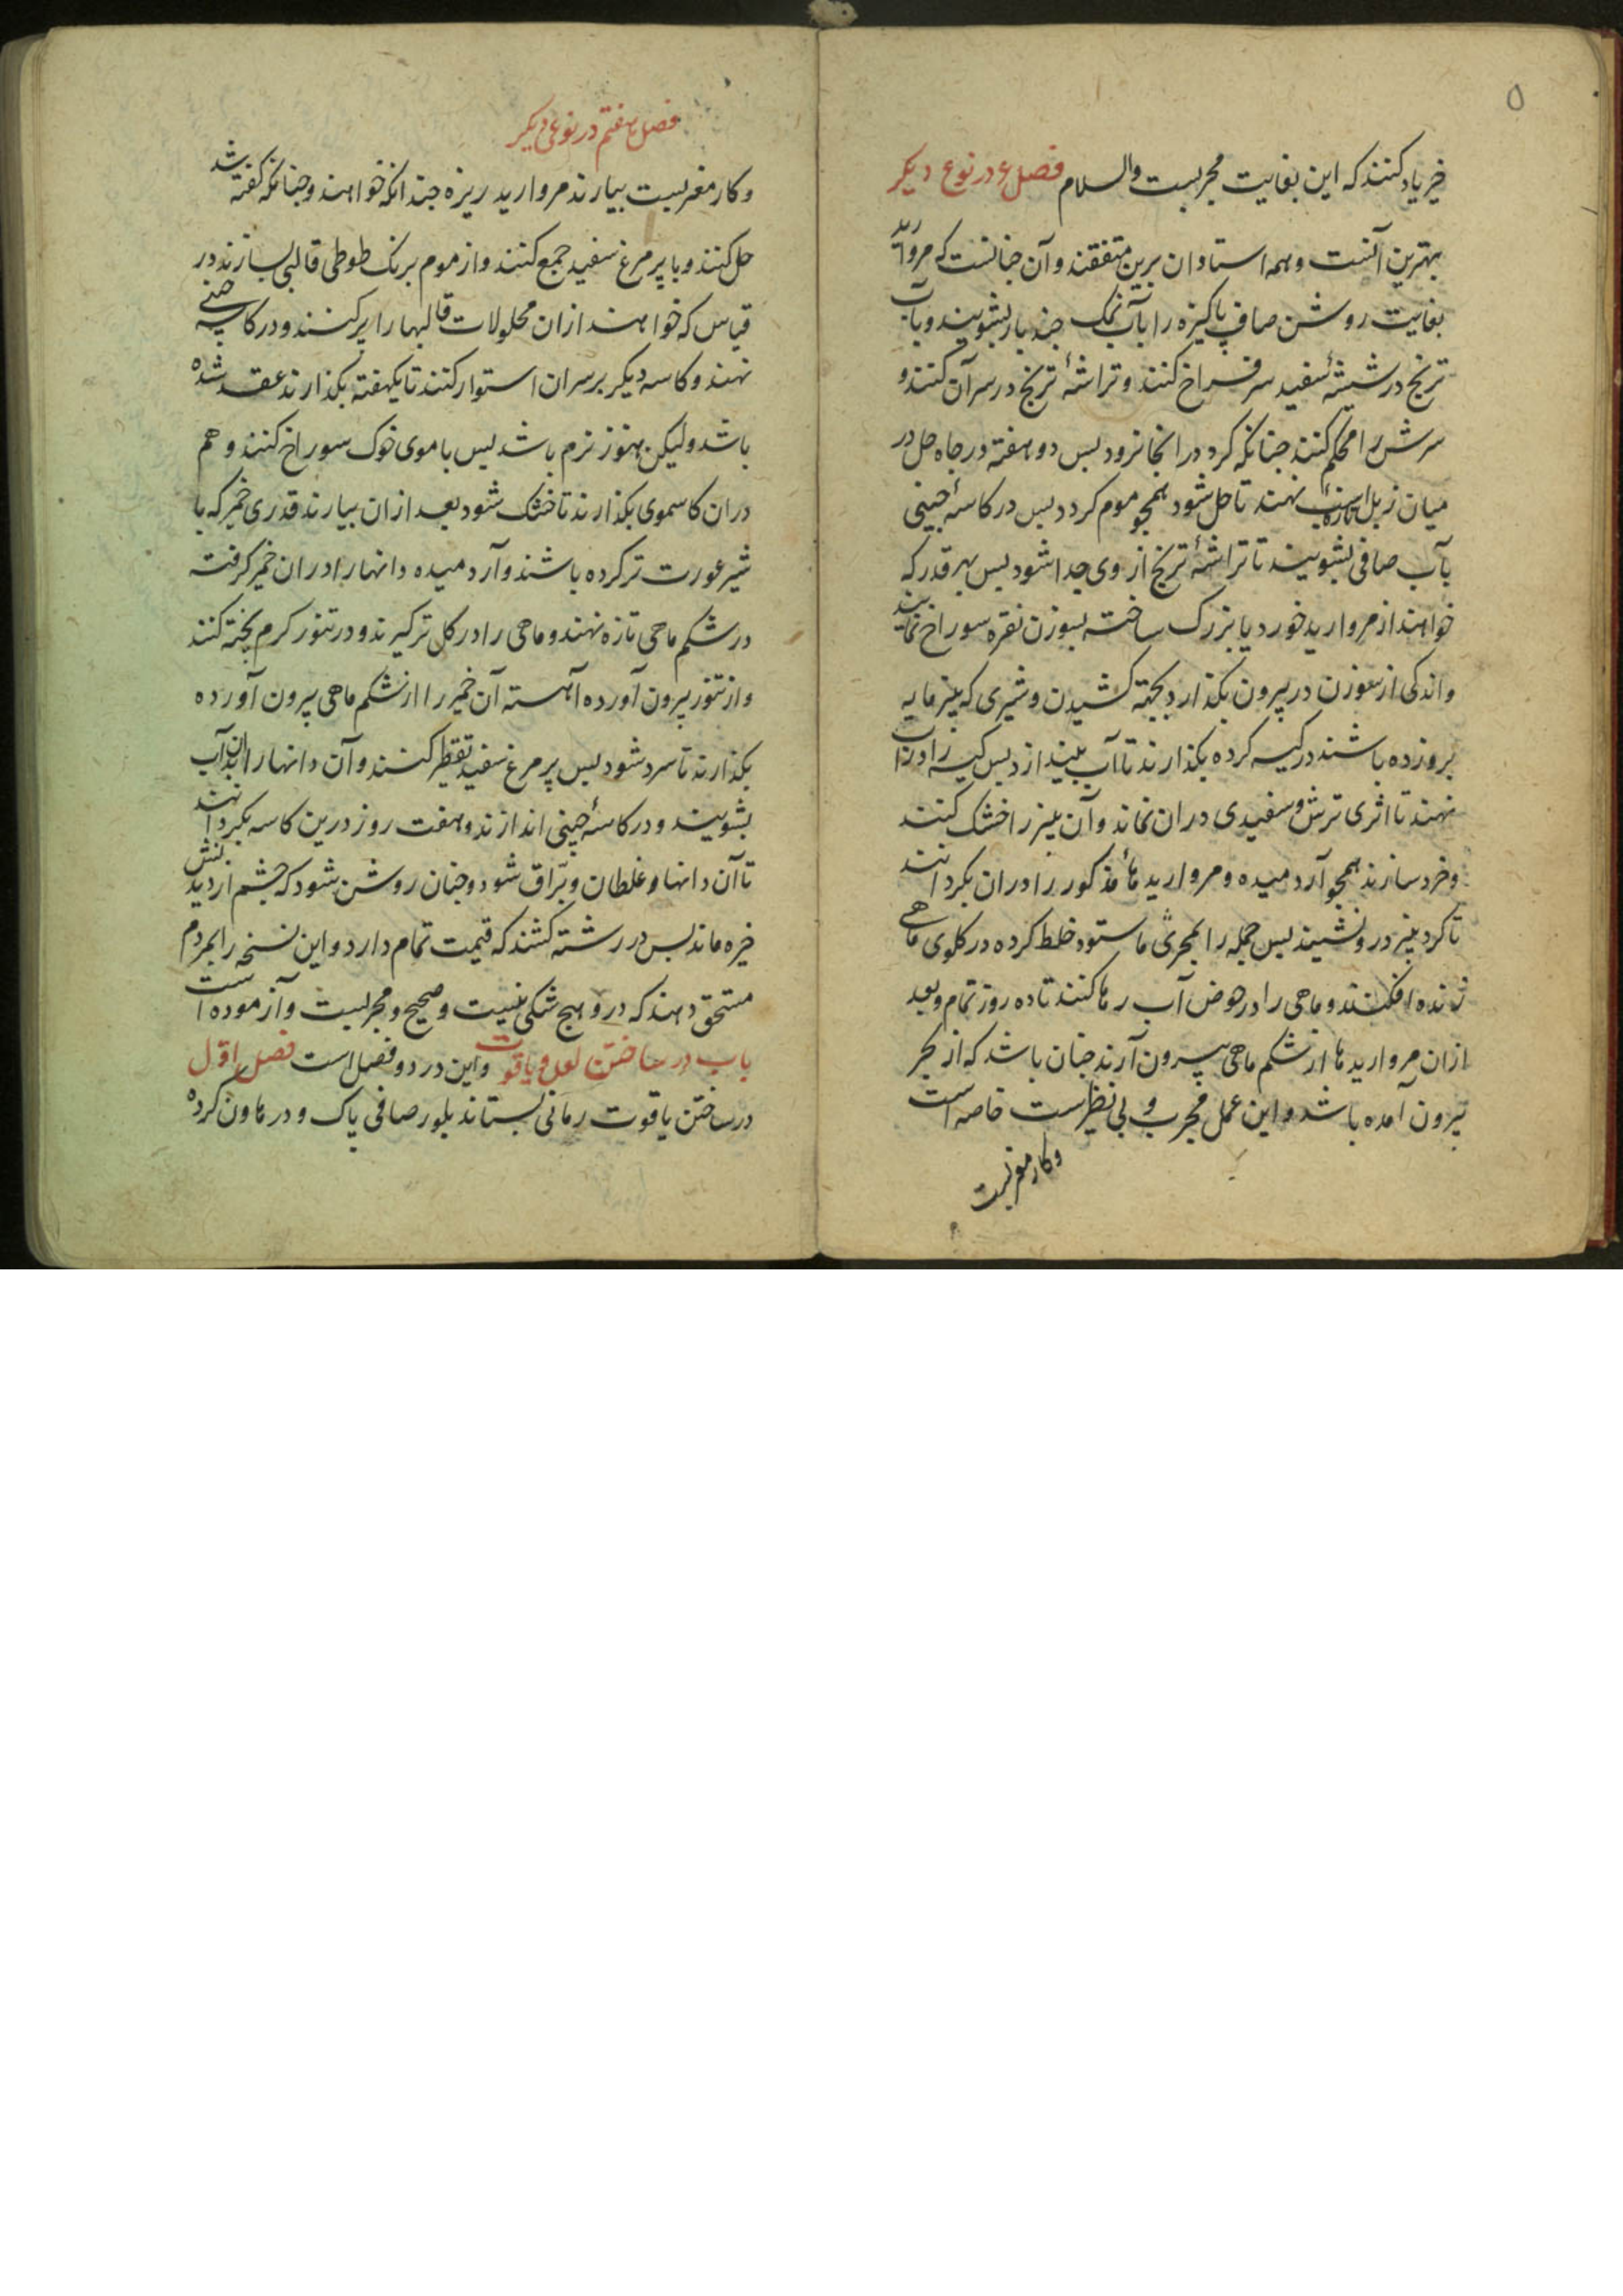 ۵
خیر یاد کنند که این بغایت مجربست والسلام فصل ع در نوع دیکر
بهترین آنست و همه استادان برین متفقند و آن چنانست که مروارید
بغایت روشن صاف پاکیزه را بآب نمک چند بار بشویند و بآب
ترنج در شیشهٔ سفید سر فراخ کنند و تراشهٔ ترنج در سر آن کنند و
سرش را محکم کنند چنانکه کرد در انجا نرود پس دو هفته در چاه حل در
میان زبل اسب تازه نهند تا حل شود همچو موم کردد پس در کاسهٔ چینی
بآب صافی بشویند تا تراشهٔ ترنج از وی جدا شود پس بهر قدر که
خواهند از مروارید خورد یا بزرک ساخته بسوزن نقره سوراخ نمایند
و اندکی از سوزن در بیرون بکذارد بجهته کشیدن و شیری که پنیر مایه
برو زده باشند در کیسه کرده بکذارند تا آب بیندازد پس کیسه را در آب
نهند تا اثری ترش و سفیدی دران نماند و آن پنیر را خشک کنند
و خرد سازند همچو آرد میده و مرواریدهاء مذکور را دران بکردانند
تا کرد پنیر درو نشیند پس جمله را خلط کرده در کلوی ماهی
زنده افکنند و ماهی را در حوض آب رها کنند تا ده روز تمام و بعد
ازان مرواریدها از شکم ماهی بیرون آرند چنان باشد که از بحر
بیرون آمده باشد و این عمل مجرب و بی نظیرست خاصه است
و کار مغربیست
فصل هفتم در نوعی دیکر
و کار مغربیست بیارند مروارید ریزه چندانکه خواهند و چنانکه کفته شد
حل کنند و با پر مرغ سفید جمع کنند و از موم برنک طوطی قالبی بسازند در
قیاس که خواهند ازان محلولات قالبها را پر کنند و در کاسه چینی
نهند و کاسه دیکر بر سر ان استوار کنند تا یکهفته بکذارند عقد شده
باشد ولیکن هنوز نرم باشد پس با موی خوک سوراخ کنند و هم
دران کاسموی بکذارند تا خشک شود بعد ازان بیارند قدری خمیر که با
شیر عورت تر کرده باشند و آرد میده دانها را دران خمیر کرفته
در شکم ماهی تازه نهند و ماهی را در کل ترکیرند و در تنور کرم پخته کنند
و از تنور بیرون آورده آهسته آن خمیر را از شکم ماهی بیرون آورده
بکذارند تا سرد شود پس پر مرغ سفید تقطیر کنند و آن دانها را بدان آب
بشویند و در کاسهٔ چینی اندازند و هفت روز درین کاسه بکردانند
تا آن دانها و غلطان و براق شود و چنان روشن شود که چشم از دیدنش
خیره ماند پس در رشته کشند که قیمت تمام دارد و این نسخه را بمردم
مستحق دهند که درو هیچ شکی نیست و صحیح و مجربست و آزموده است
باب در ساختن لعل و یاقوت و این در دو فصل است فصل اوّل
در ساختن یاقوت رمانی بستاند بلور صافی پاک و در هاون کرده